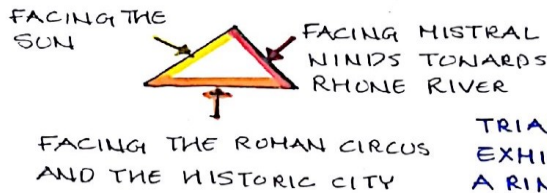 FACING THE
SUN
FACING MISTRAL
WINDS TOWARDS
RHONE RIVER
FACING THE ROMAN CIRCUS
AND THE HISTORIC CITY
TRIA
EXHI
A RIN